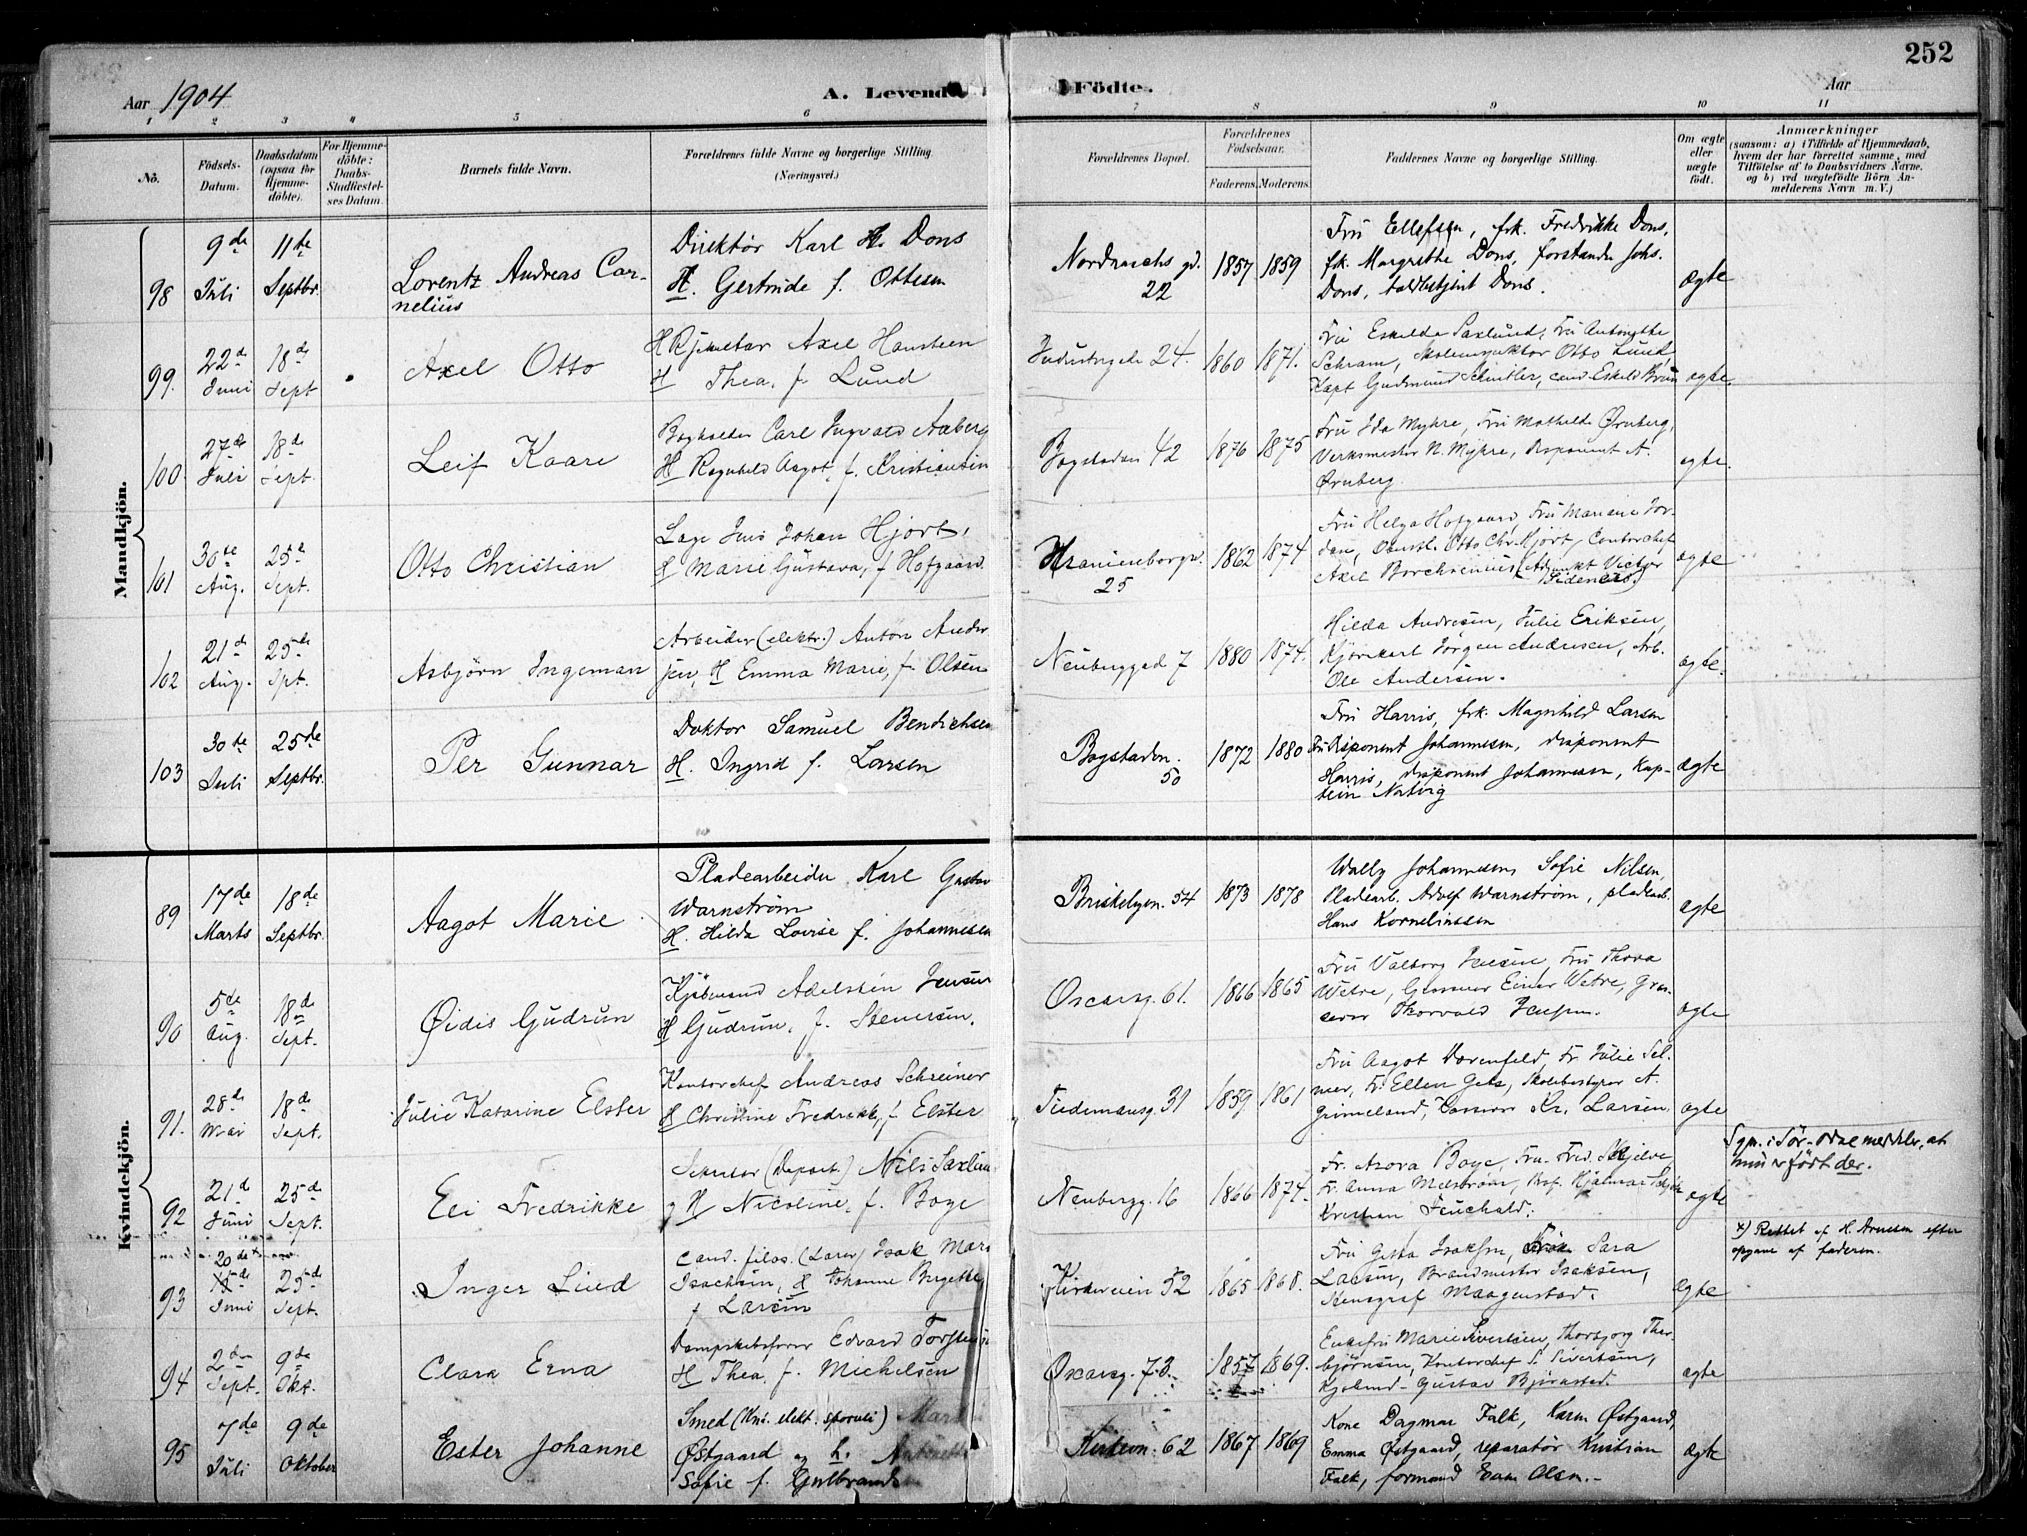 252
Aar 1904
A. Levende Födte.
Aar
1 2 3 4 5 6 7 8 9 10 11
No.
Födsels-Datum.
Daabsdatum (ogsaa for Hjemmedöbte).
For Hjemmedöbte: Daabs-Stadfæstelses Datum.
Barnets fulde Navn.
Forældrenes fulde Navne og borgerlige Stilling (Næringsvei.)
Forældrenes Bopæl.
Forældrenes Födselsaar.
Faderens. Moderens.
Faddernes Navne og borgerlige Stilling.
Om ægte eller uægte födt.
Anmærkninger
(saasom: a) i Tilfælde af Hjemmedaab, hvem der har forrettet samme, med Tilföielse af to Daabsvidners Navne, og b) ved uægtefödte Börn Anmelderens Navn m. V.)
Mandkjön.
98 9de Juli 11te Septbr.
Lorentz Andreas Cornelius
Direktør Karl H. Dons
H. Gertrude f. Ottesen
22 1857 1859
Fru Ellefsen, frk. Fredrikke Dons,
frk. Margrethe Dons, forstander Johs.
Dons, toldbetjent Dons.
ægte
99. 22de Juni 18de Sept
Axel Otto
Axel Hansteen
H Thea, f. Lund
24. 1860 1871.
Fru Eskelda Saxlund, Fru
Schram, Otto Lund,
Kapt Gudmund Schnitler, cand Eskild Bruun
ægte
100 27de Juli 18de Sept.
Leif Kaare
Bogholder Carl Ingvald Aaberg
H Ragnhild Aagot, f. Kristiansen
Bogstadvn 42 1876 1875
Fru Ida Myhre, Fru Mathilde Ørnberg,
Verksmester N. Myhre, Disponent A.
Ørnberg.
ægte.
101 30te Aug. 25de Sept.
Otto Christian
Læge Jens Johan Hjort,
H Marie Gustava, f Hofgaard.
25 1862 1874
Fru Helga Hofgaard, Fru
Otto Chr. Hjort, Contorchef
Axel Borchrevink (Adjunkt Victor
ægte
102 21de Aug. 25de Spt.
Asbjörn Ingeman
Arbeider (elektr.) Anton Andersen,
H Emma Marie, f. Olsen
Neubergged 7 1880 1874.
Hilda Andresen, Julie Eriksen,
Kjörekarl Jörgen Andresen, Arb.
Ole Andersen.
ægte.
103 30te Juli 25de Septbr.
Per Gunnar
Doktor Samuel Bendichsen
H. Ingrid f. Larsen
Bogstadvn. 50 1872 1880
Fru Harris, frk. Magnhild Larsen
Fru disponent Johannesen, disponent
Harris, disponent Johannesen, Kaptein Natvig
ægte
Kvindekjön.
89 17de Marts 18de Septbr.
Aagot Marie
Pladearbeider Karl Gustav
Warnström
H. Hilda Lovise f. Johannesen
Briskebyen. 54 1873 1878
Wally Johannesen, Sofie Nilsen,
Pladearb. Adolf Warnström, pladearb.
Hans Kornelinssen
ægte
90 5de Aug. 18de Sept.
Øidis Gudrun
Kjöbmand Adelsten Jensen
H Gudrun, f. Stenersen.
Oscarsg. 61. 1866 1865
Fru Valborg Jensen, Fru Thora
Wetre, Einar Wetre, Grosserer Thorvald Jensen.
ægte
91. 28de Mai 18de Sept.
Julie Katarine Elster
Kontorchef Andreas Schreiner
H Christine Fredrikke, f Elster
Tiedemansg. 31 1859 1861
Fru Aagot Dorenfeld, Fr. Julie Selmer, Fr. Ellen Getz, Skolebestyrer A.
Grimeland, Kr. Larsen.
ægte
92 21d Juni 25de Sept.
Eli Fredrikke
Sekretær (Depart.) Nils Saxlund
og H Nicoline, f. Boye
Neubergg. 16 1866 1874.
Fr. Asora Boye, Fru Fred.
Fr. Anna Prof. Hjalmar
Kristian Feuchald.
ægte
Sgpr. i Sør-Odal meddeler, at
hun er født der.
93 20de 25de Juni Sept.
Inger Lied
Cand. filos. (Lærer) Isak
Isachsen, H Johanne Birgitte
f Larsen
Kirkeveien 52 1865 1868.
Fru Gesta Isaksen, Sara
Larsen, Brandmester Isaksen,
ægte
x) Rettet af H. Arnesen efter
opgave af faderen.
94 2den Sept. 9de Okt.
Clara Erna
Dampskibsfører Edvard Torstensen
H Thea, f. Michelsen
Oscarsg. 73. 1857 1869.
Enkefru Marie Sivertsen, Thorbjörg Thorbjörnsen, Kontorchef S. Sivertsen,
Kjøbmd Gustav Bjørnstad.
ægte
95 7de Juli 9de Oktober
Ester Johanne
Smed (Kri. elekt. sporvei)
Østgaard og h.
Sofie f. Gulbrandsen
Kirkevn. 62 1867 1869
Kone Dagmar Falk, Karen Østgaard,
Emma Østgaard, reparatør Kristian
Falk, formand Olsen.
ægte